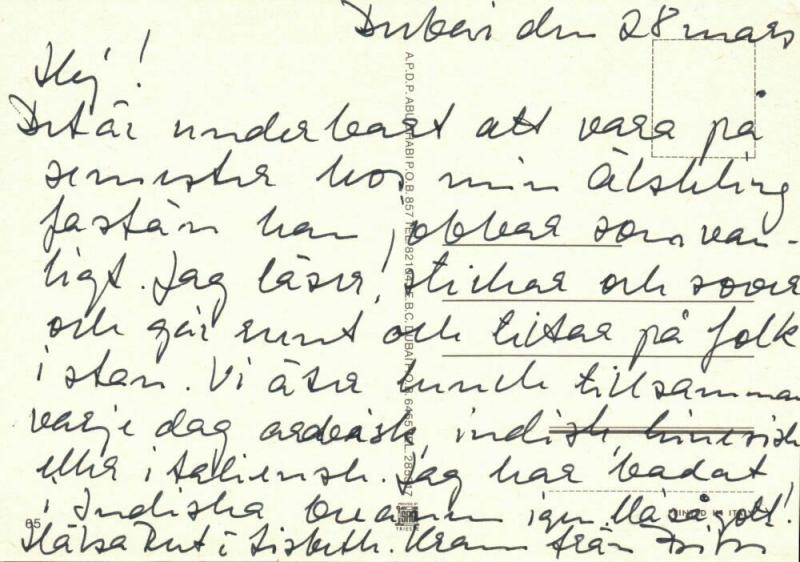 Dubai den 28 mars
Hej!
Det är underbart att vara på
semester hos min älskling
fastän han jobbar som van-
ligt. Jag läser, stickar och sover
och går runt och tittar på folk
i stan. Vi äter lunch tillsamman
varje dag arabisk, indisk, kinesisk
eller italiensk. Jag har badat
i Indiska oceanen igen
Hälsa Rut i Lisbeth. Kram från
A.P.D.P. ABU DHABI P.O.B. 857 TEL. E.B.C. DUBAI P.O.B.
65
PRINTED IN ITALY